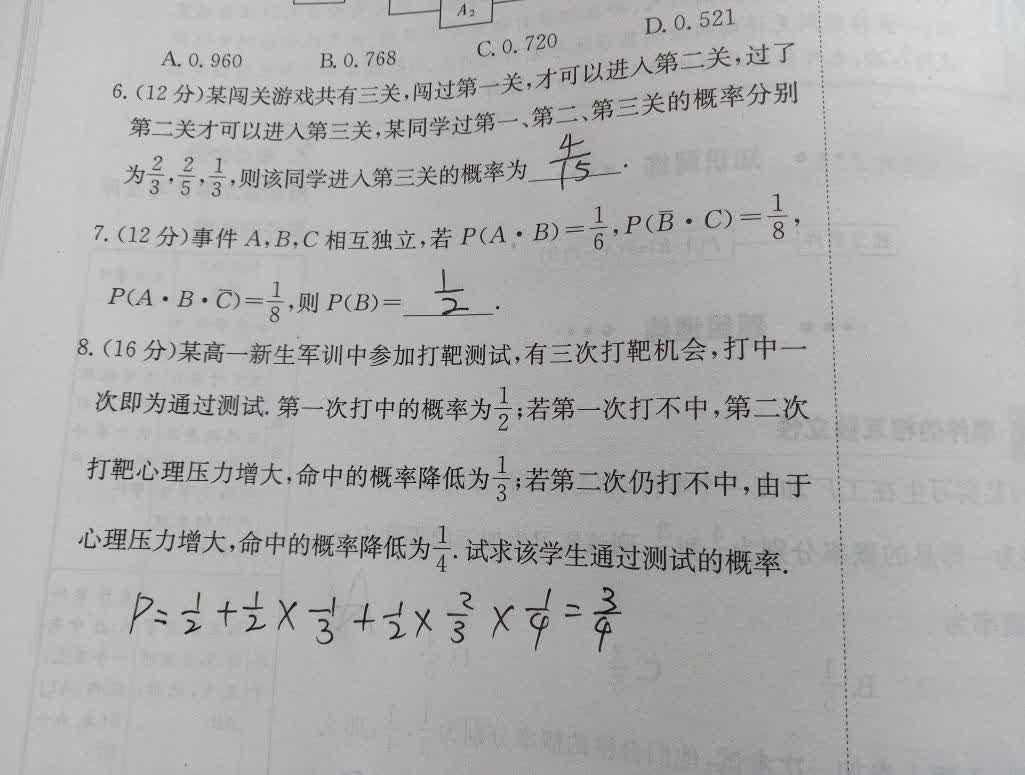 A₂
A. 0.960 B. 0.768 C. 0.720 D. 0.521
6. (12 分)某闯关游戏共有三关,闯过第一关,才可以进入第二关,过了
第二关才可以进入第三关,某同学过第一、第二、第三关的概率分别
为2/3,2/5,1/3,则该同学进入第三关的概率为 4/15 .
7. (12 分)事件 A,B,C 相互独立,若 P(A·B)=1/6,P(B̄·C)=1/8,
P(A·B·C̄)=1/8,则 P(B)= 1/2 .
8. (16 分)某高一新生军训中参加打靶测试,有三次打靶机会,打中一
次即为通过测试. 第一次打中的概率为1/2;若第一次打不中,第二次
打靶心理压力增大,命中的概率降低为1/3;若第二次仍打不中,由于
心理压力增大,命中的概率降低为1/4. 试求该学生通过测试的概率.
P=1/2+1/2×1/3+1/2×2/3×1/4=3/4